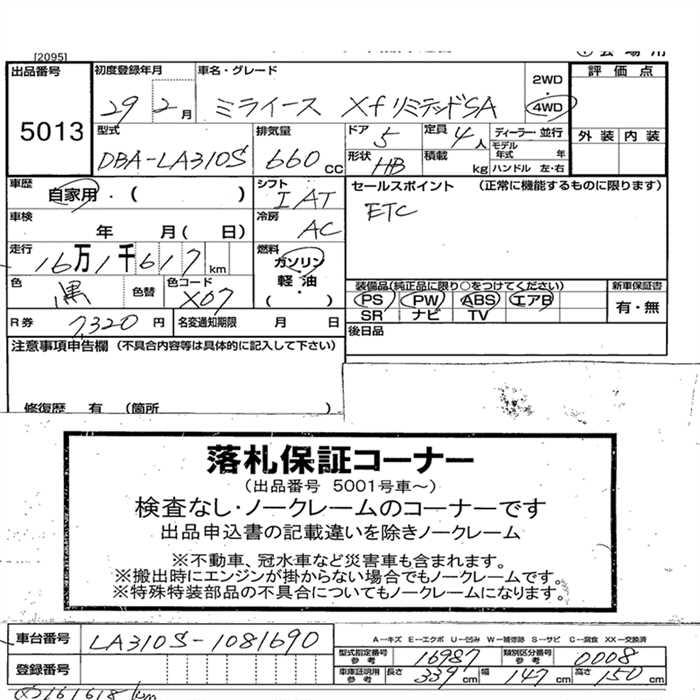 [2095]
出品番号 初度登録年月 車名・グレード 2WD 評価点
5013 29 2月 ミライース XfリミテッドSA ・ 4WD
型式 排気量 ドア 5 定員 4人 ディーラー・並行 外装 内装
DBA-LA310S 660cc 形状 HB 積載 kg モデル年式 年
ハンドル 左・右
車歴 自家用・( ) シフト IAT セールスポイント (正常に機能するものに限ります)
車検 年 月( 日) 冷房 AC ETC
走行 16万1千617km 燃料 ガソリン
軽油・
( )
色 黒 色替 色コード X07
装備品(純正品に限り○をつけてください) 新車保証書
PS PW ABS エアB 有・無
SR ナビ TV
R券 7,320円 名変通知期限 月 日 後日品
注意事項申告欄 (不具合内容等は具体的に記入して下さい)
修復歴 有 (箇所
落札保証コーナー
(出品番号 5001号車~)
検査なし・ノークレームのコーナーです
出品申込書の記載違いを除きノークレーム
※不動車、冠水車など災害車も含まれます。
※搬出時にエンジンが掛からない場合でもノークレームです。
※特殊特装部品の不具合についてもノークレームになります。
車台番号 LA310S-1081690
A-キズ E-エクボ U-凹み W-補修跡 S-サビ C-腐食 XX-交換済
型式指定番号 参考 16987 類別区分番号 参考 0008
登録番号
車庫証明用 参考 長さ 339cm 幅 147cm 高さ 150cm
161618km